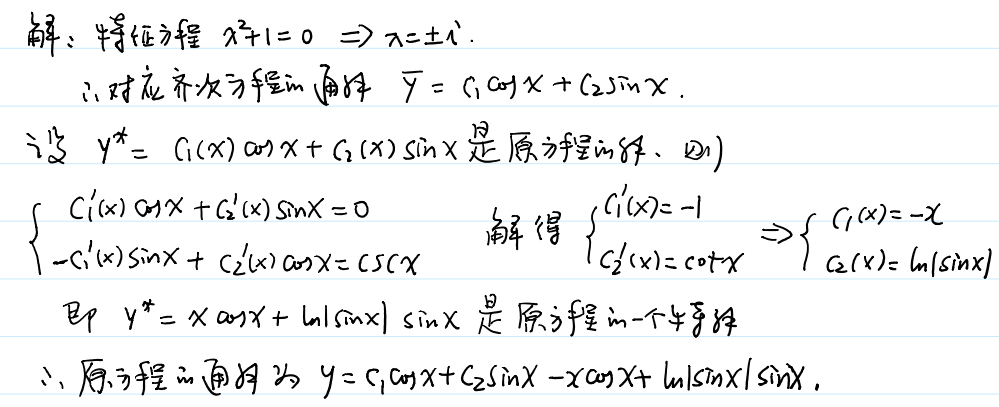 解：特征方程 λ²+1=0 ⇒ λ=±i.
∴对应齐次方程的通解 ȳ = C₁cosx + C₂sinx.
设 y* = C₁(x) cosx + C₂(x) sinx 是原方程的解、则
{ C₁'(x) cosx + C₂'(x) sinx = 0
-C₁'(x) sinx + C₂'(x) cosx = cscx 解得 { C₁'(x) = -1
C₂'(x) = cotx ⇒ { C₁(x) = -x
C₂(x) = ln|sinx|
即 y* = x cosx + ln|sinx| sinx 是原方程的一个特解
∴原方程的通解为 y = C₁cosx + C₂sinx - xcosx + ln|sinx| sinx.